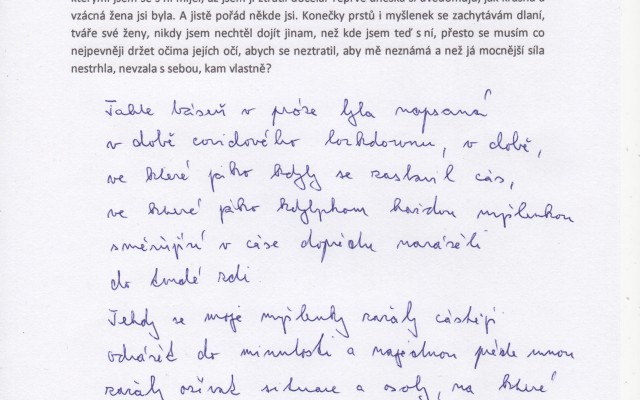 vzácná žena jsi byla. A jistě pořád někde jsi. Konečky prstů i myšlenek se zachytávám dlaní,
tváře své ženy, nikdy jsem nechtěl dojít jinam, než kde jsem teď s ní, přesto se musím co
nejpevněji držet očima jejích očí, abych se neztratil, aby mě neznámá a než já mocnější síla
nestrhla, nevzala s sebou, kam vlastně?
Tahle báseň v próze byla napsaná
v době covidového lockdownu, v době,
ve které jako kdyby se zastavil čas,
ve které jako kdybychom každou myšlenkou
směřující v čase dopředu naráželi
do tvrdé zdi.
Tehdy se moje myšlenky začaly častěji
odrážet do minulosti a najednou přede mnou
začaly ožívat situace a osoby, na které